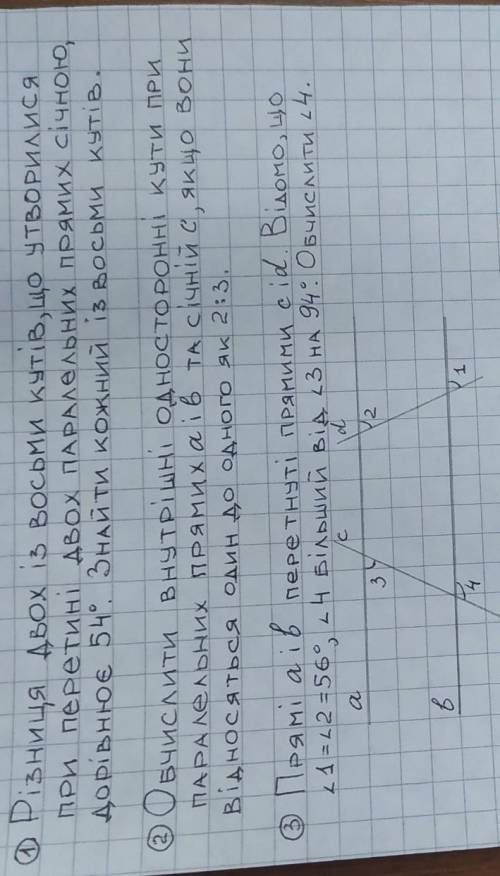 ① Різниця двох із восьми кутів, що утворилися
при перетині двох паралельних прямих січною,
дорівнює 54°. Знайти кожний із восьми кутів.
② Обчислити внутрішні односторонні кути при
паралельних прямих а і в та січній с, якщо вони
відносяться один до одного як 2:3.
③ Прямі а і в перетнуті прямими с і d. Відомо, що
∠1=∠2=56°, ∠4 більший від ∠3 на 94°. Обчислити ∠4.
c d
a 3 2
в 4 1